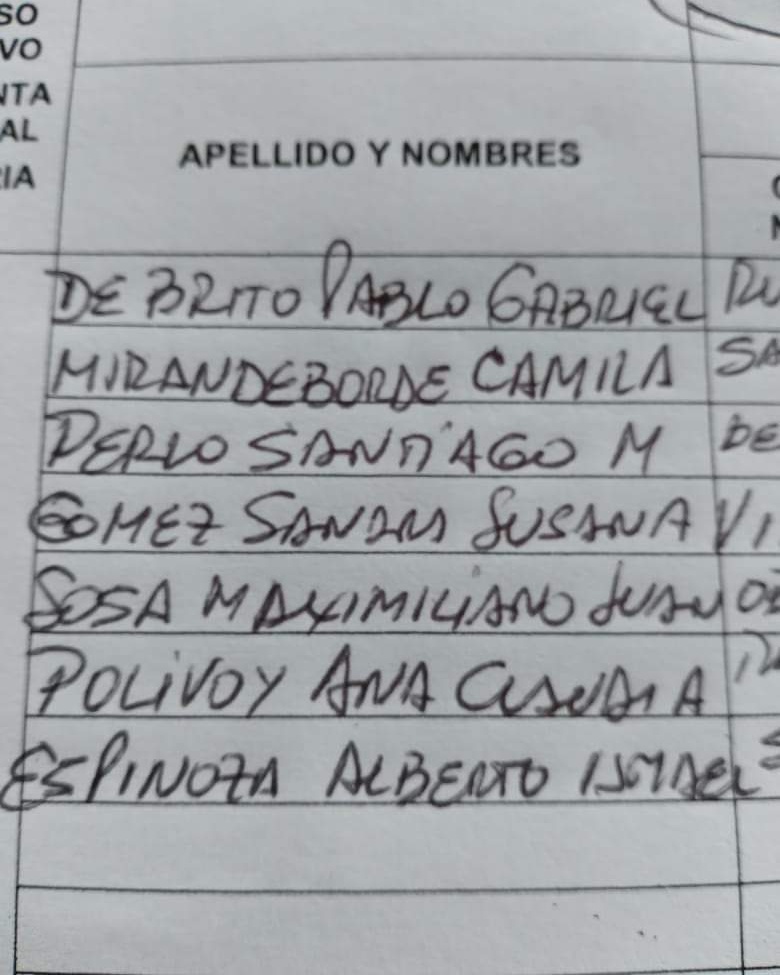 SO
VO
NTA
AL
IA
APELLIDO Y NOMBRES
DE BRITO PABLO GABRIEL
MIRANDEBORDE CAMILA SA
PERLO SANTIAGO M DE
GOMEZ SANDRA SUSANA VI
SOSA MAXIMILIANO JUAN
POLIVOY ANA CLAUDIA
ESPINOZA ALBERTO ISMAEL